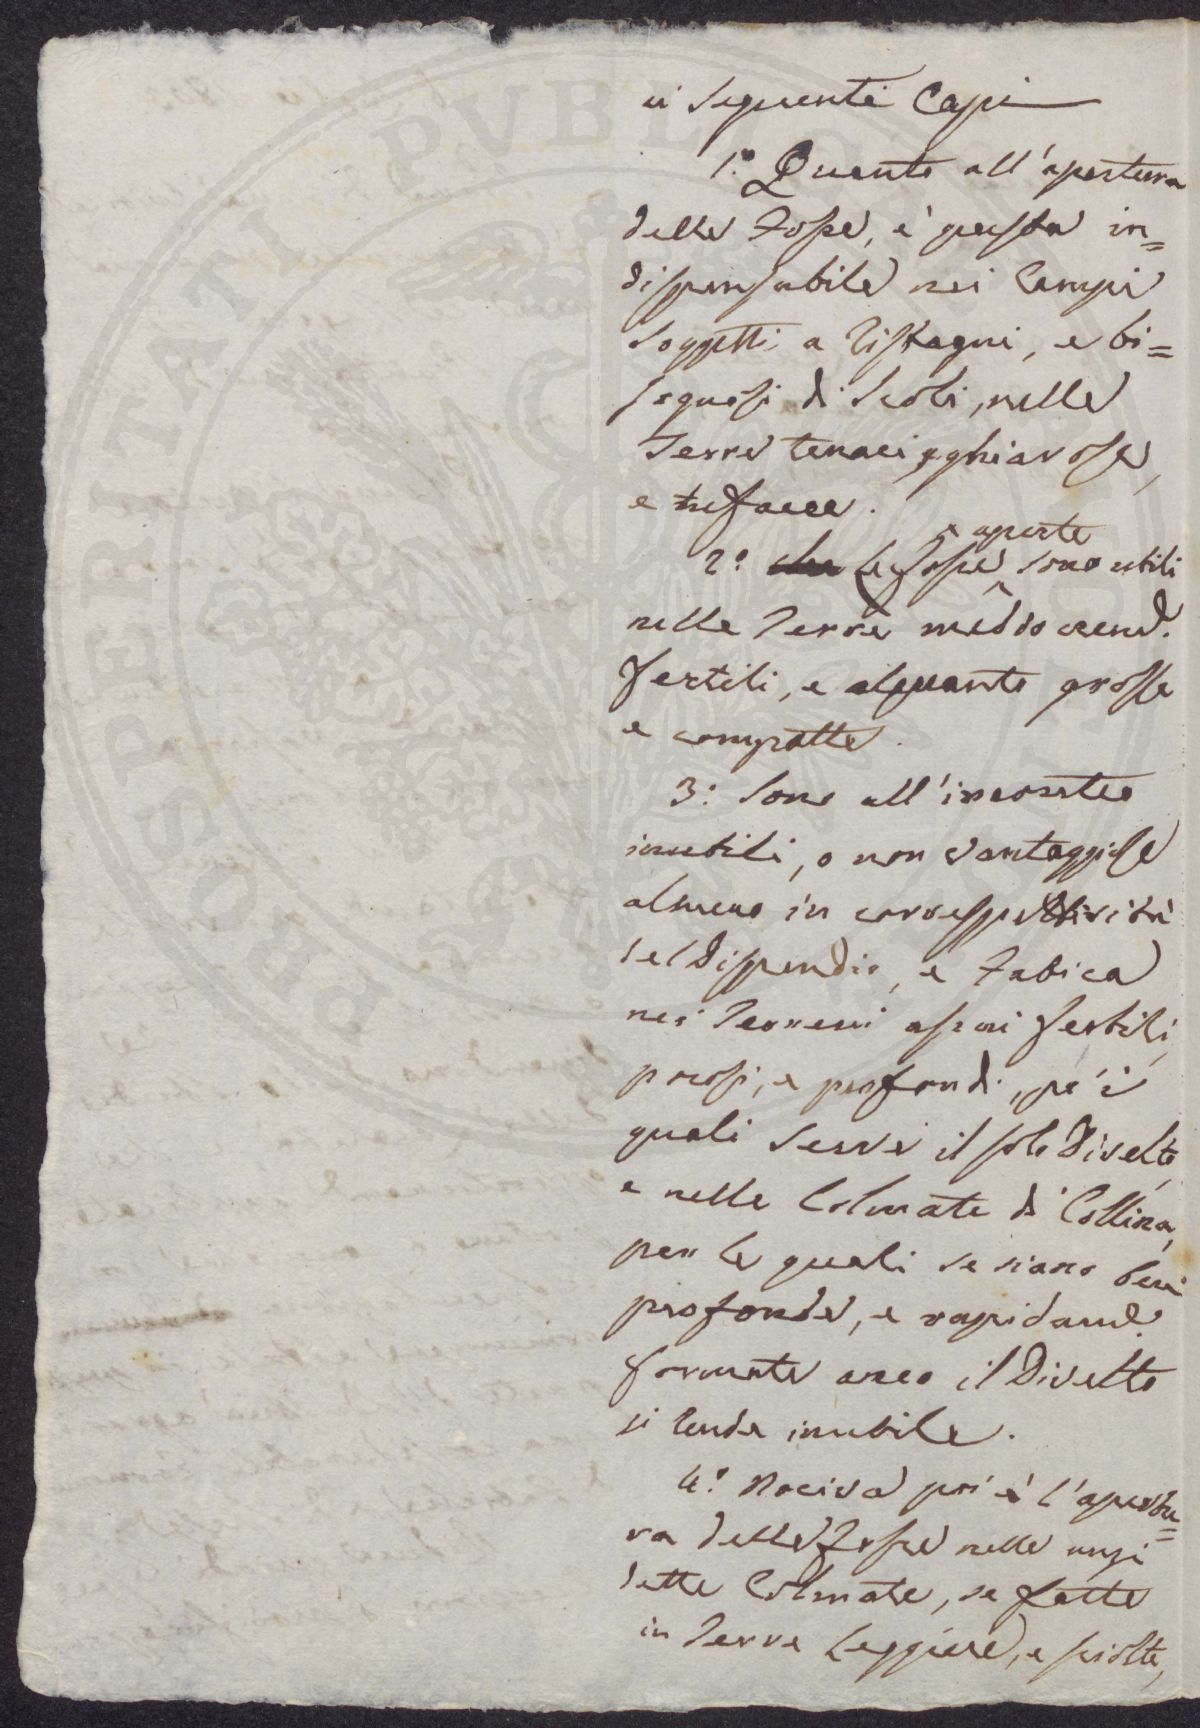 ai seguenti Capi
1.º Quanto all'apertura
delle Fosse, è questa in=
dispensabile nei Campi
soggetti a Ristagni, e bi=
sognosi di Scoli, nelle
Terre tenaci, e ghiarose,
e tufacee.
aperte
2.º Le Fosse sono utili
nelle Terre mediocremd.
fertili, e alquanto grosse
e compatte.
3: Sono all'incontro
inutili, o non vantaggiose
almeno in correspettività
del Dispendio, e Fatica
nei Terreni assai fertili,
porosi, e profondi, pe' i
quali serve il solo Divelto,
e nelle Colmate di Collina,
per le quali se siano ben
profonde, e rapidamd.
formate anco il Divelto
si rende inutile.
4.º Nociva poi è l'apertu=
ra delle Fosse nelle anzi
dette Colmate, se fatte
in Terre leggiere, e sciolte,
PVBLICA
PROSPERITATI